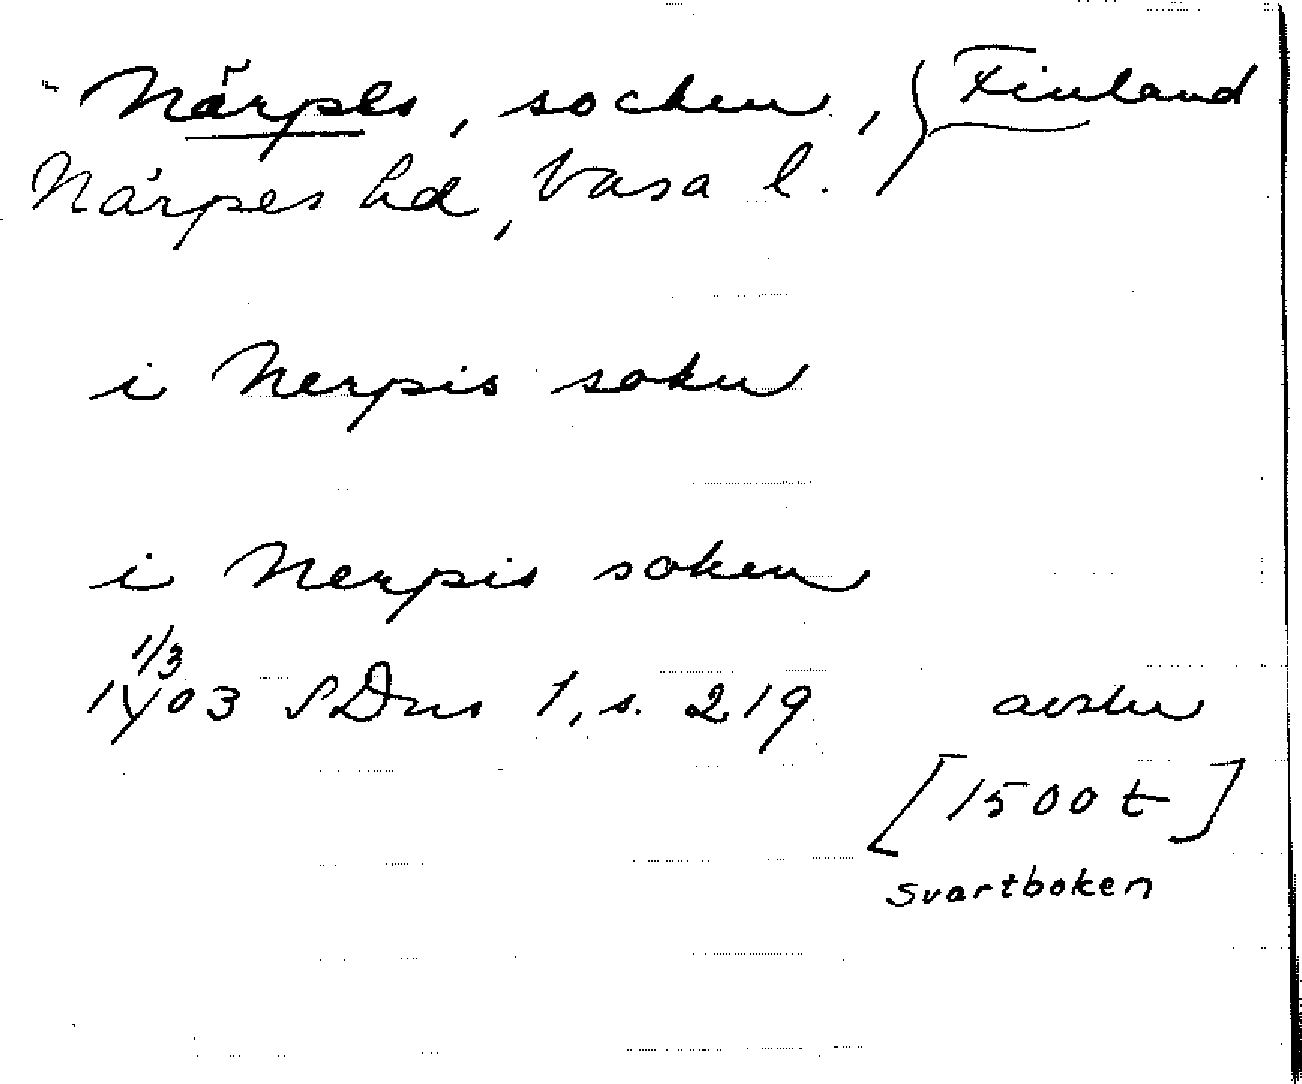 Närpes, socken, Finland
Närpes hd, Vasa l.
i Nerpis sokn
i Nerpis soken
1/3
1403 SDns 1, s. 219 avskr
[1500 t]
Svartboken